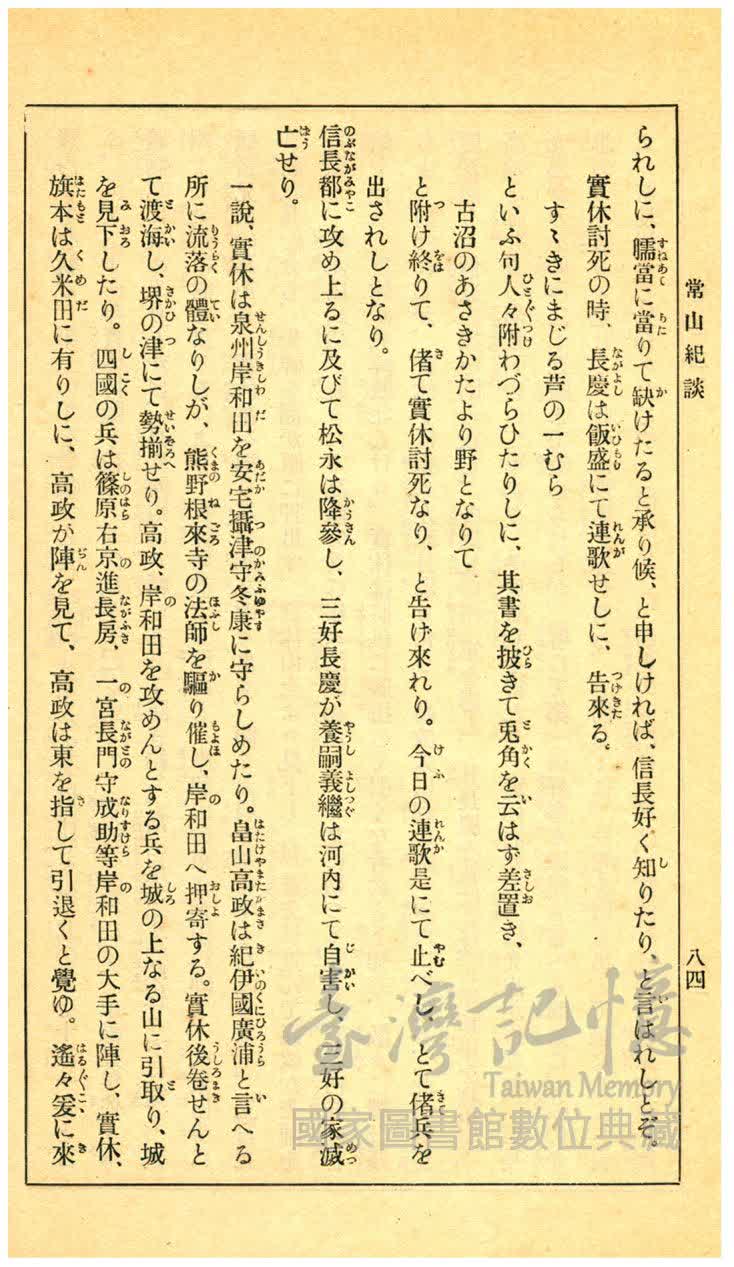 常山紀談
八四
られしに、臑當に當りて缺けたると承り候、と申しければ、信長好く知りたり、と言はれしとぞ。
實休討死の時、長慶は飯盛にて連歌せしに、告來る。
すゝきにまじる芦の一むら
といふ句人々附わづらひたりしに、其書を披きて兎角を云はず差置き、
古沼のあさきかたより野となりて
と附け終りて、偖て實休討死なり、と告げ來れり。今日の連歌是にて止べし、とて偖兵を
出されしとなり。
信長都に攻め上るに及びて松永は降參し、三好長慶が養嗣義繼は河内にて自害し、三好の家滅
亡せり。
一說、實休は泉州岸和田を安宅攝津守冬康に守らしめたり。畠山高政は紀伊國廣浦と言へる
所に流落の體なりしが、熊野根來寺の法師を驅り催し、岸和田へ押寄する。實休後卷せんと
て渡海し、堺の津にて勢揃せり。高政、岸和田を攻めんとする兵を城の上なる山に引取り、城
を見下したり。四國の兵は篠原右京進長房、一宮長門守成助等岸和田の大手に陣し、實休、
旗本は久米田に有りしに、高政が陣を見て、高政は東を指して引退くと覺ゆ。遙々爰に來
臺灣記憶
Taiwan Memory
國家圖書館數位典藏